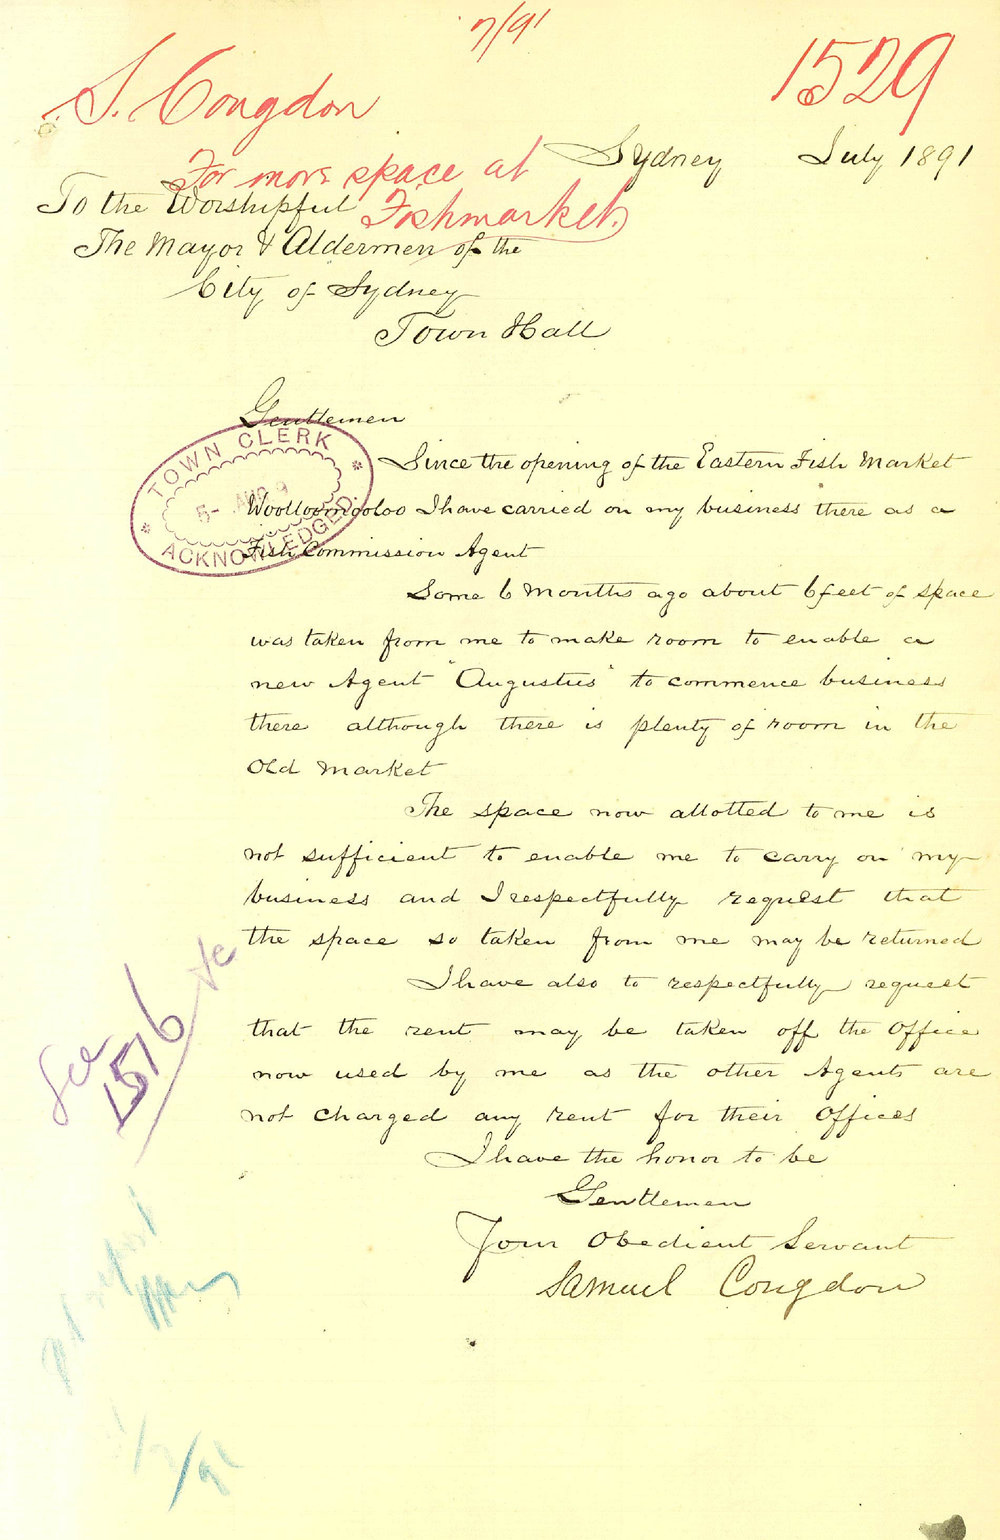 7/91
1529
S. Congdon
For more space at
Fishmarket.
Sydney July 1891
To the Worshipful
The Mayor & Aldermen of the
City of Sydney
Town Hall
Gentlemen
TOWN CLERK
5- AUG 9
ACKNOWLEDGED.
Since the opening of the Eastern Fish Market
Woolloomooloo I have carried on my business there as a
Fish Commission Agent
Some 6 months ago about 6 feet of space
was taken from me to make room to enable a
new Agent "Augustus" to commence business
there although there is plenty of room in the
Old Market
The space now allotted to me is
not sufficient to enable me to carry on my
business and I respectfully request that
the space so taken from me may be returned
I have also to respectfully request
that the rent may be taken off the office
now used by me as the other Agents are
not charged any rent for their offices
I have the honor to be
Gentlemen
Your Obedient Servant
Samuel Congdon
See
1516